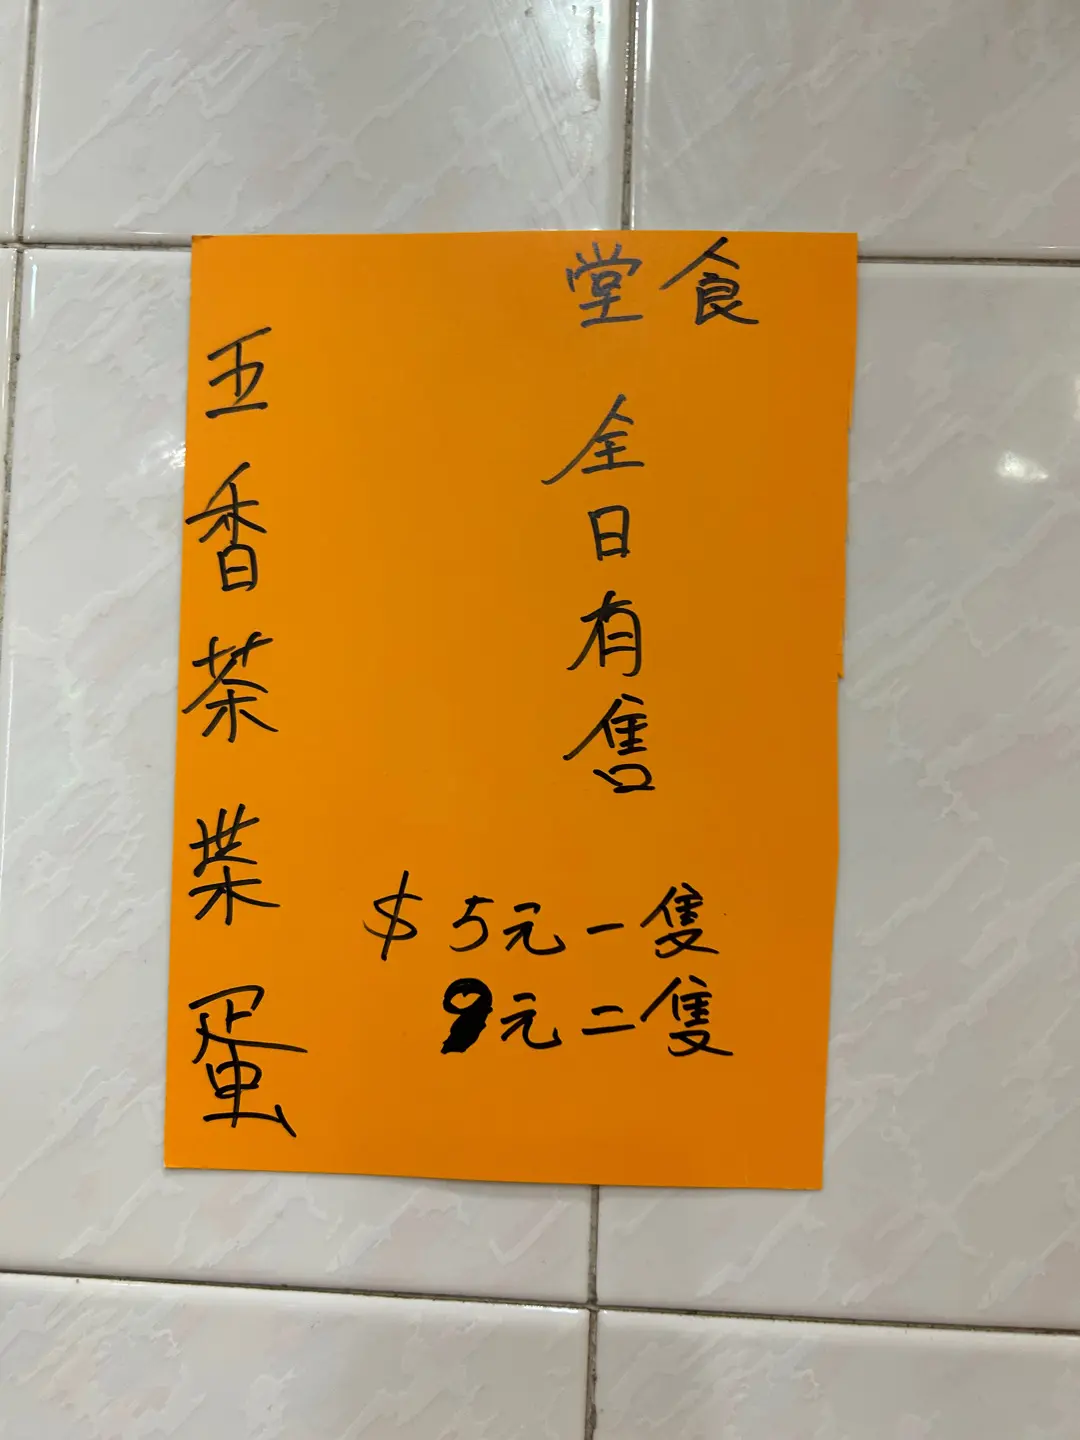 堂食
全日有售
$5元一隻
9元二隻
五香茶葉蛋